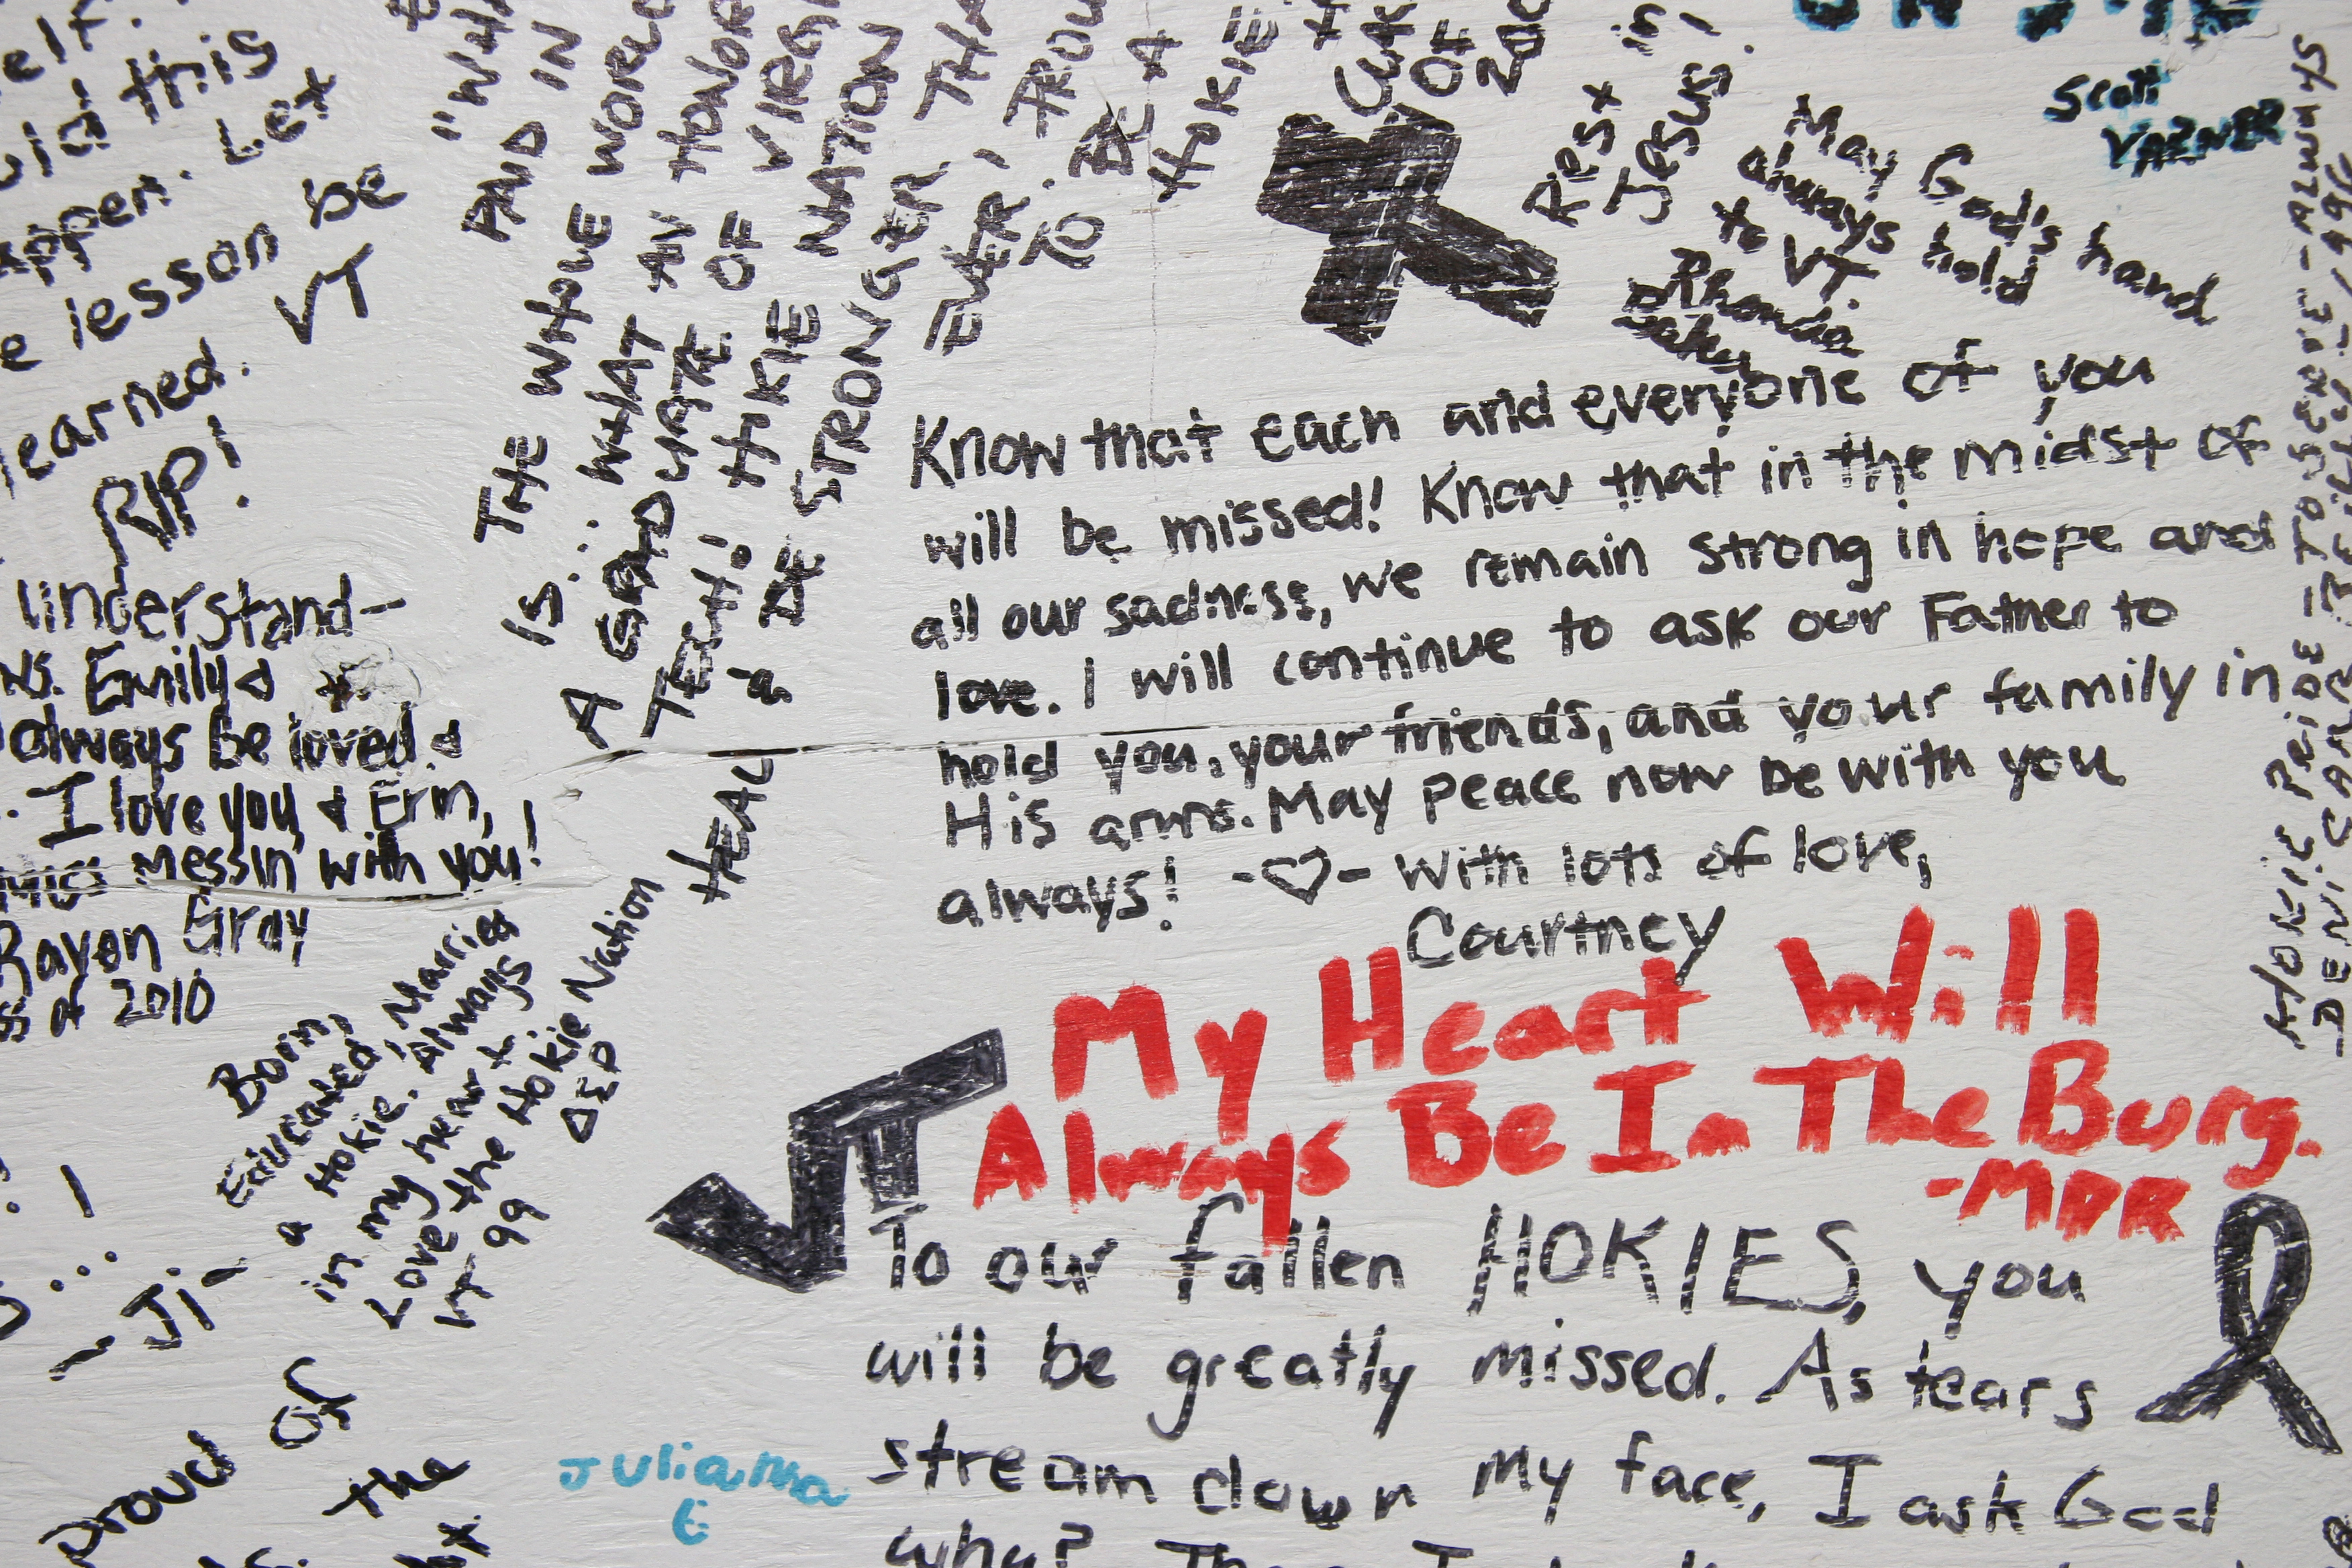 this
Let
lesson be
learned. VT
RIP!
Understand-
Emily &
always be loved &
I love you & Erin,
messin with you!
Rayon Gray
of 2010
PAID IN
THE WHOLE WORLD
IS... WHAT AN HONOR
A GRADUATE OF
TECH! HOKIE NATION
BE STRONGER
EVER,
TO BE A
HOKIE
HEAL
OF
Rest in
Jesus!
Scott
VARNER
May God's hand
always hold
to VT.
Rhonda
Know that each and everyone of you
will be missed! Know that in the midst of
all our sadness, we remain strong in hope and
love. I will continue to ask our Father to
hold you, your friends, and your family in
His arms. May peace now be with you
always! -♡- With lots of love,
Courtney
HOKIE PRIDE - TO SERVE - ALWAYS
My Heart Will
Always Be In The Burg.
-MDR
Born,
Educated, Married
a Hokie. Always
in my heart
Love the Hokie Nation
VT 99
-Ji-
VT
To our fallen HOKIES, you
will be greatly missed. As tears
stream down my face, I ask God
why?
Proud of
the
Julianna
E